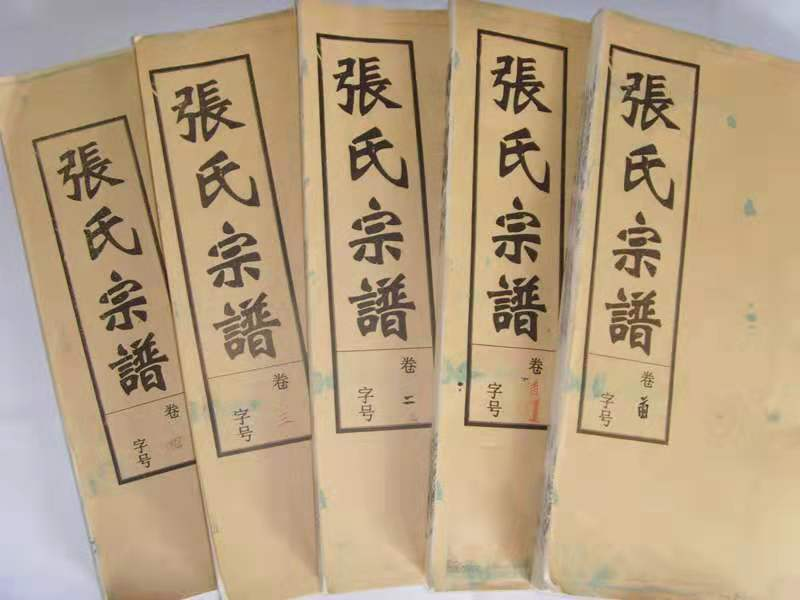 張氏宗譜
卷
字号
張氏宗譜
卷三
字号
張氏宗譜
卷二
字号
張氏宗譜
卷
字号
張氏宗譜
卷首
字号